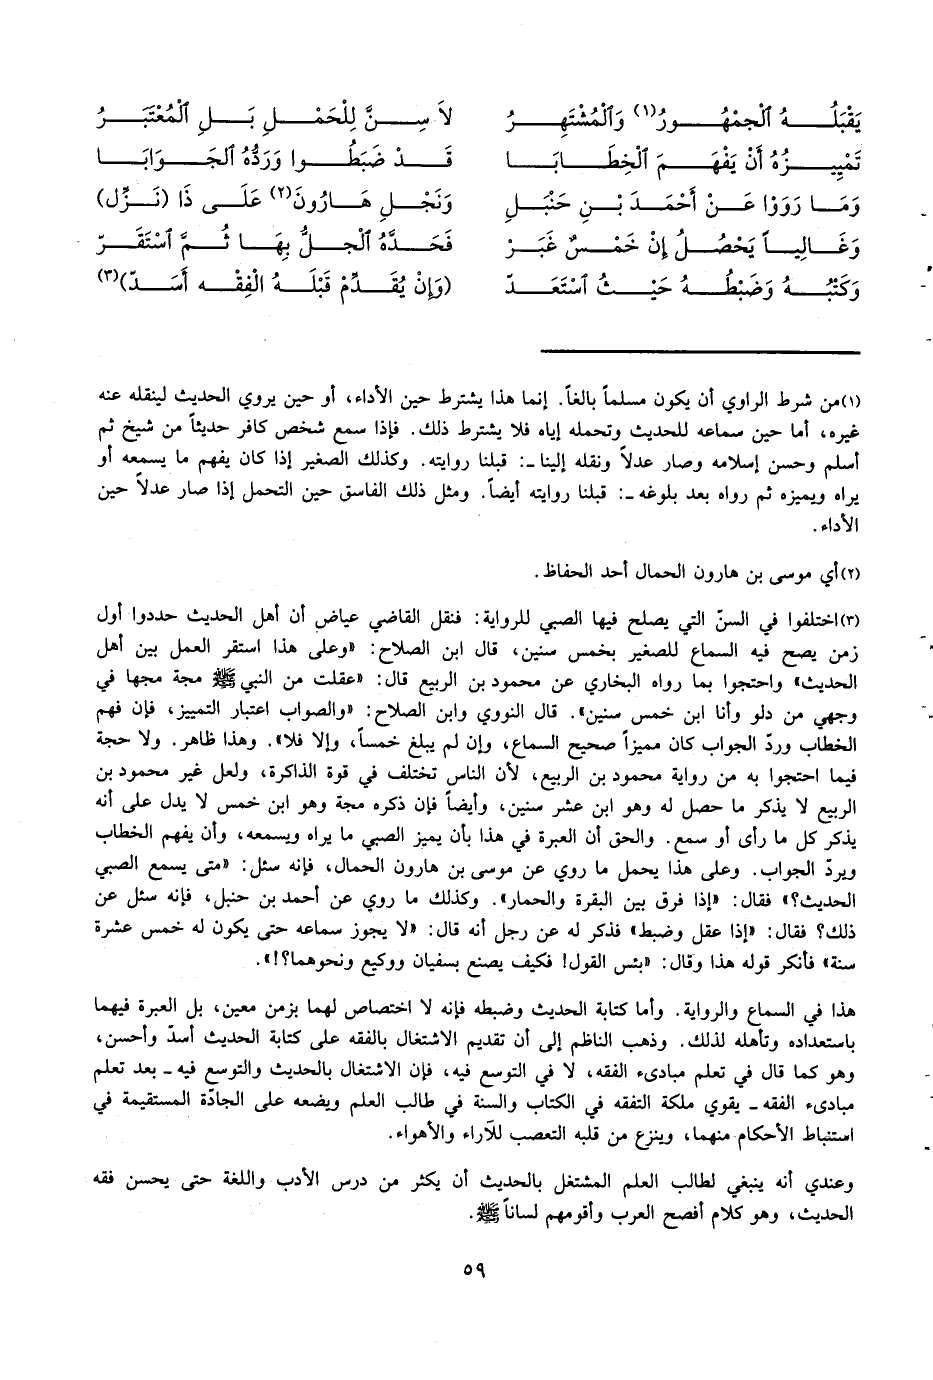 يَقْبَلُهُ الْجُمْهُورُ(١) وَالْمُشْتَهِرُ لاَ سِنَّ لِلْحَمْلِ بَلِ الْمُعْتَبَرُ
تَمْيِيزُهُ أَنْ يَفْهَمَ الْخِطَابَا قَدْ ضَبَطُوا وَرَدُّهُ الْجَوَابَا
وَمَا رَوَوْا عَنْ أَحْمَدَ بْنِ حَنْبَلِ وَنَجْلِ هَارُونَ(٢) عَلَى ذَا (نَزِّلِ)
وَغَالِباً يَحْصُلُ إِنْ خَمْسٌ غَبَرْ فَحَدُّهُ الْجُلُّ بِهَا ثُمَّ اسْتَقَرّ
وَكَتْبُهُ وَضَبْطُهُ حَيْثُ اسْتَعَدّ (وَإِنْ يُقَدِّمْ قَبْلَهُ الْفِقْه أَسَدّ)(٣)
(١) من شرط الراوي أن يكون مسلماً بالغاً. إنما هذا يشترط حين الأداء، أو حين يروي الحديث لينقله عنه
غيره، أما حين سماعه للحديث وتحمله إياه فلا يشترط ذلك. فإذا سمع شخص كافر حديثاً من شيخ ثم
أسلم وحسن إسلامه وصار عدلاً ونقله إلينا ـ: قبلنا روايته. وكذلك الصغير إذا كان يفهم ما يسمعه أو
يراه ويميزه ثم رواه بعد بلوغه ـ: قبلنا روايته أيضاً. ومثل ذلك الفاسق حين التحمل إذا صار عدلاً حين
الأداء.
(٢) أي موسى بن هارون الحمال أحد الحفاظ.
(٣) اختلفوا في السنّ التي يصلح فيها الصبي للرواية: فنقل القاضي عياض أن أهل الحديث حددوا أول
زمن يصح فيه السماع للصغير بخمس سنين، قال ابن الصلاح: «وعلى هذا استقر العمل بين أهل
الحديث» واحتجوا بما رواه البخاري عن محمود بن الربيع قال: «عقلت من النبي ﷺ مجة مجها في
وجهي من دلو وأنا ابن خمس سنين». قال النووي وابن الصلاح: «والصواب اعتبار التمييز، فإن فهم
الخطاب وردّ الجواب كان مميزاً صحيح السماع، وإن لم يبلغ خمساً، وإلا فلا». وهذا ظاهر. ولا حجة
فيما احتجوا به من رواية محمود بن الربيع، لأن الناس تختلف في قوة الذاكرة، ولعل غير محمود بن
الربيع لا يذكر ما حصل له وهو ابن عشر سنين، وأيضاً فإن ذكره مجة وهو ابن خمس لا يدل على أنه
يذكر كل ما رأى أو سمع. والحق أن العبرة في هذا بأن يميز الصبي ما يراه ويسمعه، وأن يفهم الخطاب
ويردّ الجواب. وعلى هذا يحمل ما روي عن موسى بن هارون الحمال، فإنه سئل: «متى يسمع الصبي
الحديث؟» فقال: «إذا فرق بين البقرة والحمار». وكذلك ما روي عن أحمد بن حنبل، فإنه سئل عن
ذلك؟ فقال: «إذا عقل وضبط» فذكر له عن رجل أنه قال: «لا يجوز سماعه حتى يكون له خمس عشرة
سنة» فأنكر قوله هذا وقال: «بئس القول! فكيف يصنع بسفيان ووكيع ونحوهما؟!».
هذا في السماع والرواية. وأما كتابة الحديث وضبطه فإنه لا اختصاص لهما بزمن معين، بل العبرة فيهما
باستعداده وتأهله لذلك. وذهب الناظم إلى أن تقديم الاشتغال بالفقه على كتابة الحديث أسدّ وأحسن،
وهو كما قال في تعلم مبادىء الفقه، لا في التوسع فيه، فإن الاشتغال بالحديث والتوسع فيه ـ بعد تعلم
مبادىء الفقه ـ يقوي ملكة التفقه في الكتاب والسنة في طالب العلم ويضعه على الجادّة المستقيمة في
استنباط الأحكام منهما، وينزع من قلبه التعصب للآراء والأهواء.
وعندي أنه ينبغي لطالب العلم المشتغل بالحديث أن يكثر من درس الأدب واللغة حتى يحسن فقه
الحديث، وهو كلام أفصح العرب وأقومهم لساناً ﷺ.
٥٩